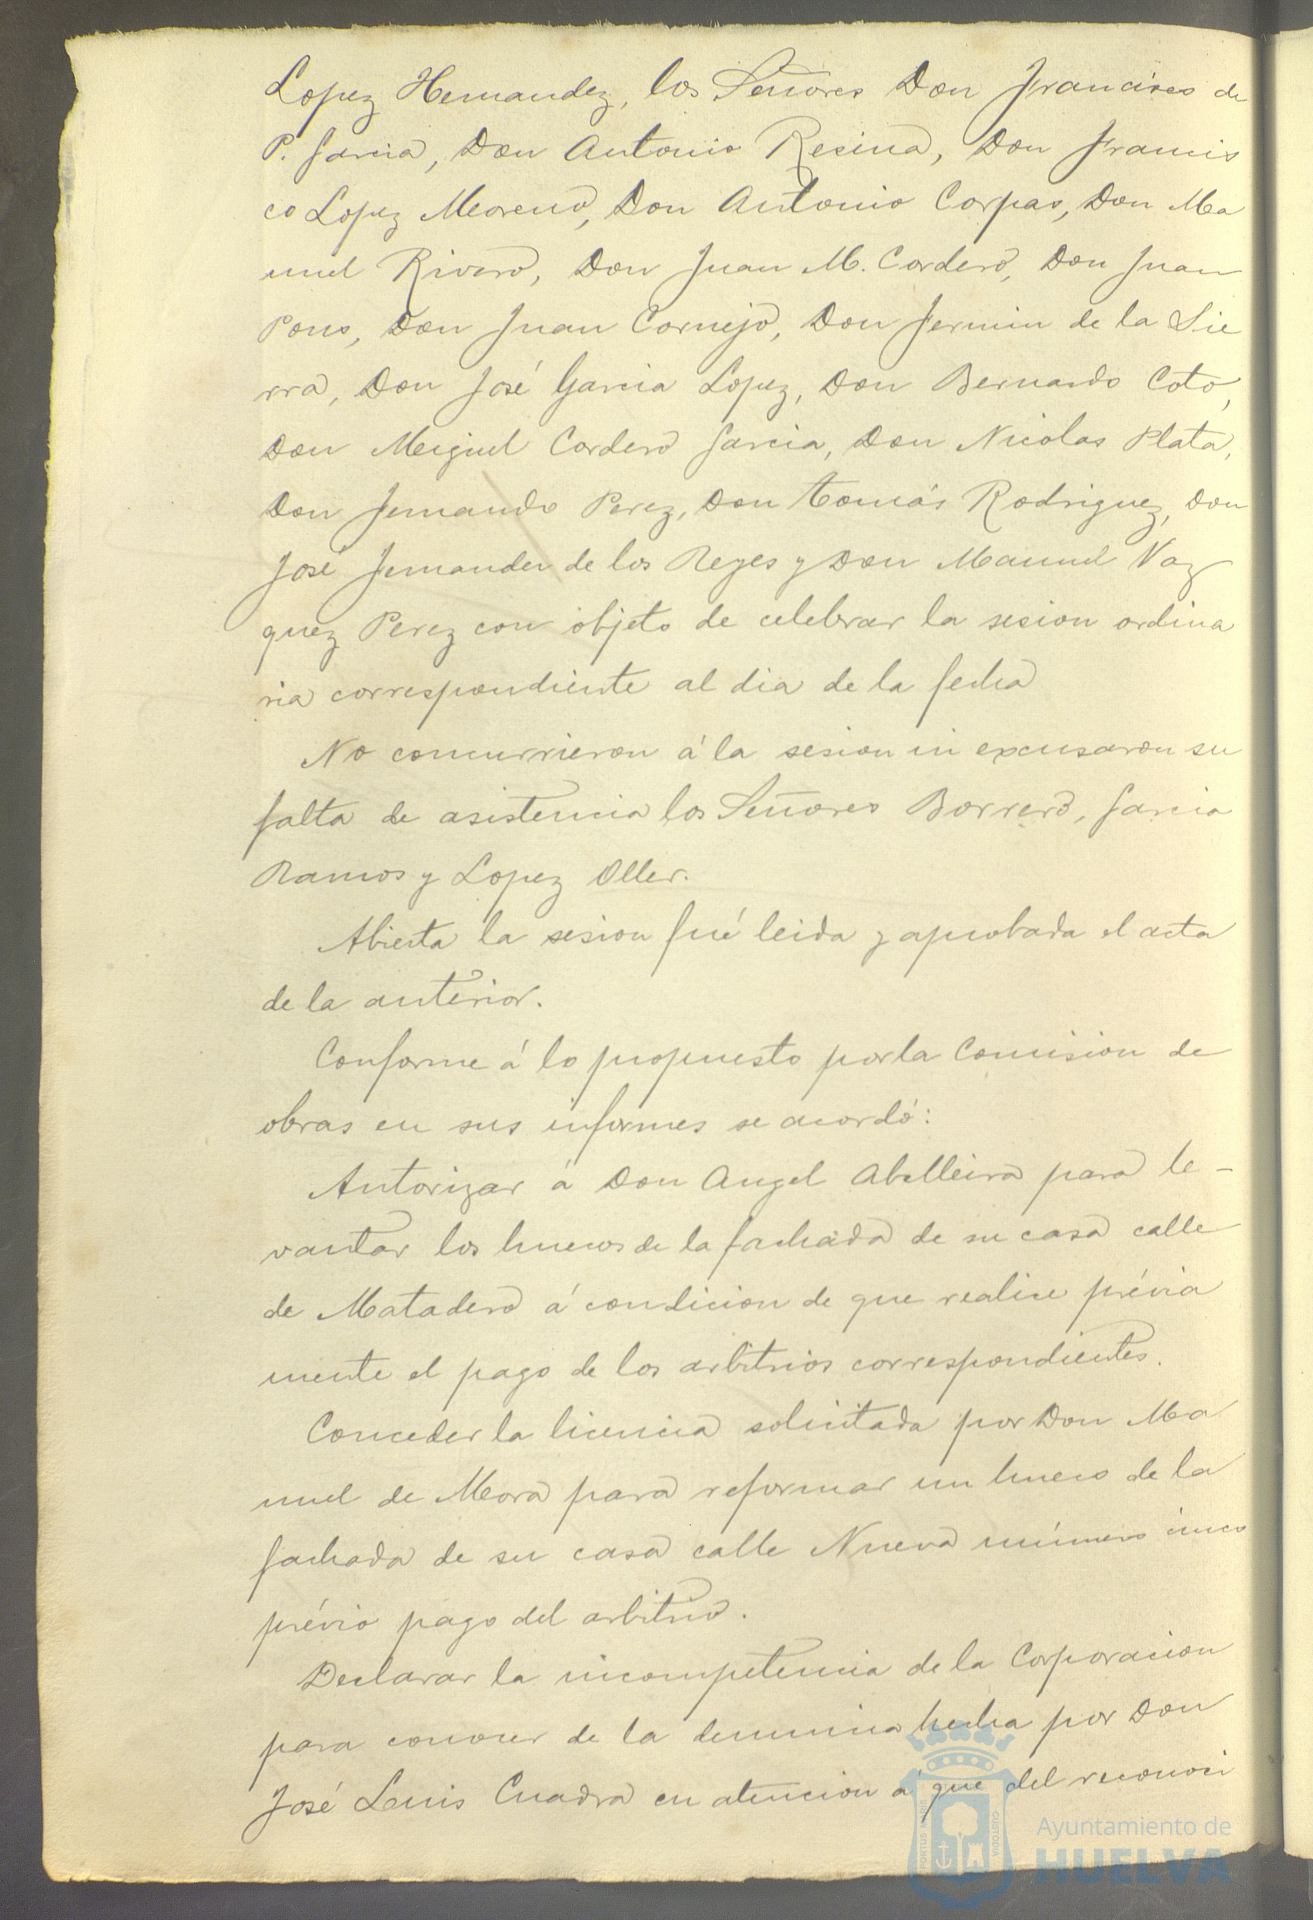 Lopez Hernandez, los Señores Don Francisco de
P. Garcia, Don Antonio Resina, Don Francis
co Lopez Moreno, Don Antonio Corpas, Don Ma
nuel Rivero, Don Juan M. Cordero, Don Juan
Pons, Don Juan Cornejo, Don Fermin de la Sie
rra, Don José Garcia Lopez, Don Bernardo Coto,
Don Miguel Cordero Garcia, Don Nicolas Plata,
Don Fernando Perez, Don Tomás Rodriguez, Don
José Fernandez de los Reyes y Don Manuel Vaz
quez Perez con objeto de celebrar la sesion ordina
ria correspondiente al dia de la fecha
No concurrieron á la sesion ni excusaron su
falta de asistencia los Señores Borrero, Garcia
Ramos y Lopez Oller.
Abierta la sesion fué leida y aprobada el acta
de la anterior.
Conforme á lo propuesto por la Comision de
obras en sus informes se acordó:
Autorizar á Don Angel Abelleira para le-
vantar los huecos de la fachada de su casa calle
de Matadero á condicion de que realice prévia
mente el pago de los arbitrios correspondientes.
Conceder la licencia solicitada por Don Ma
nuel de Mora para reformar un hueco de la
fachada de su casa calle Nueva número cinco
prévio pago del arbitrio.
Declarar la incompetencia de la Corporacion
para conocer de la denuncia hecha por Don
José Luis Cuadra en atencion á que del reconoci
Ayuntamiento de
HUELVA
PORTUS MARIS
CUSTODIA